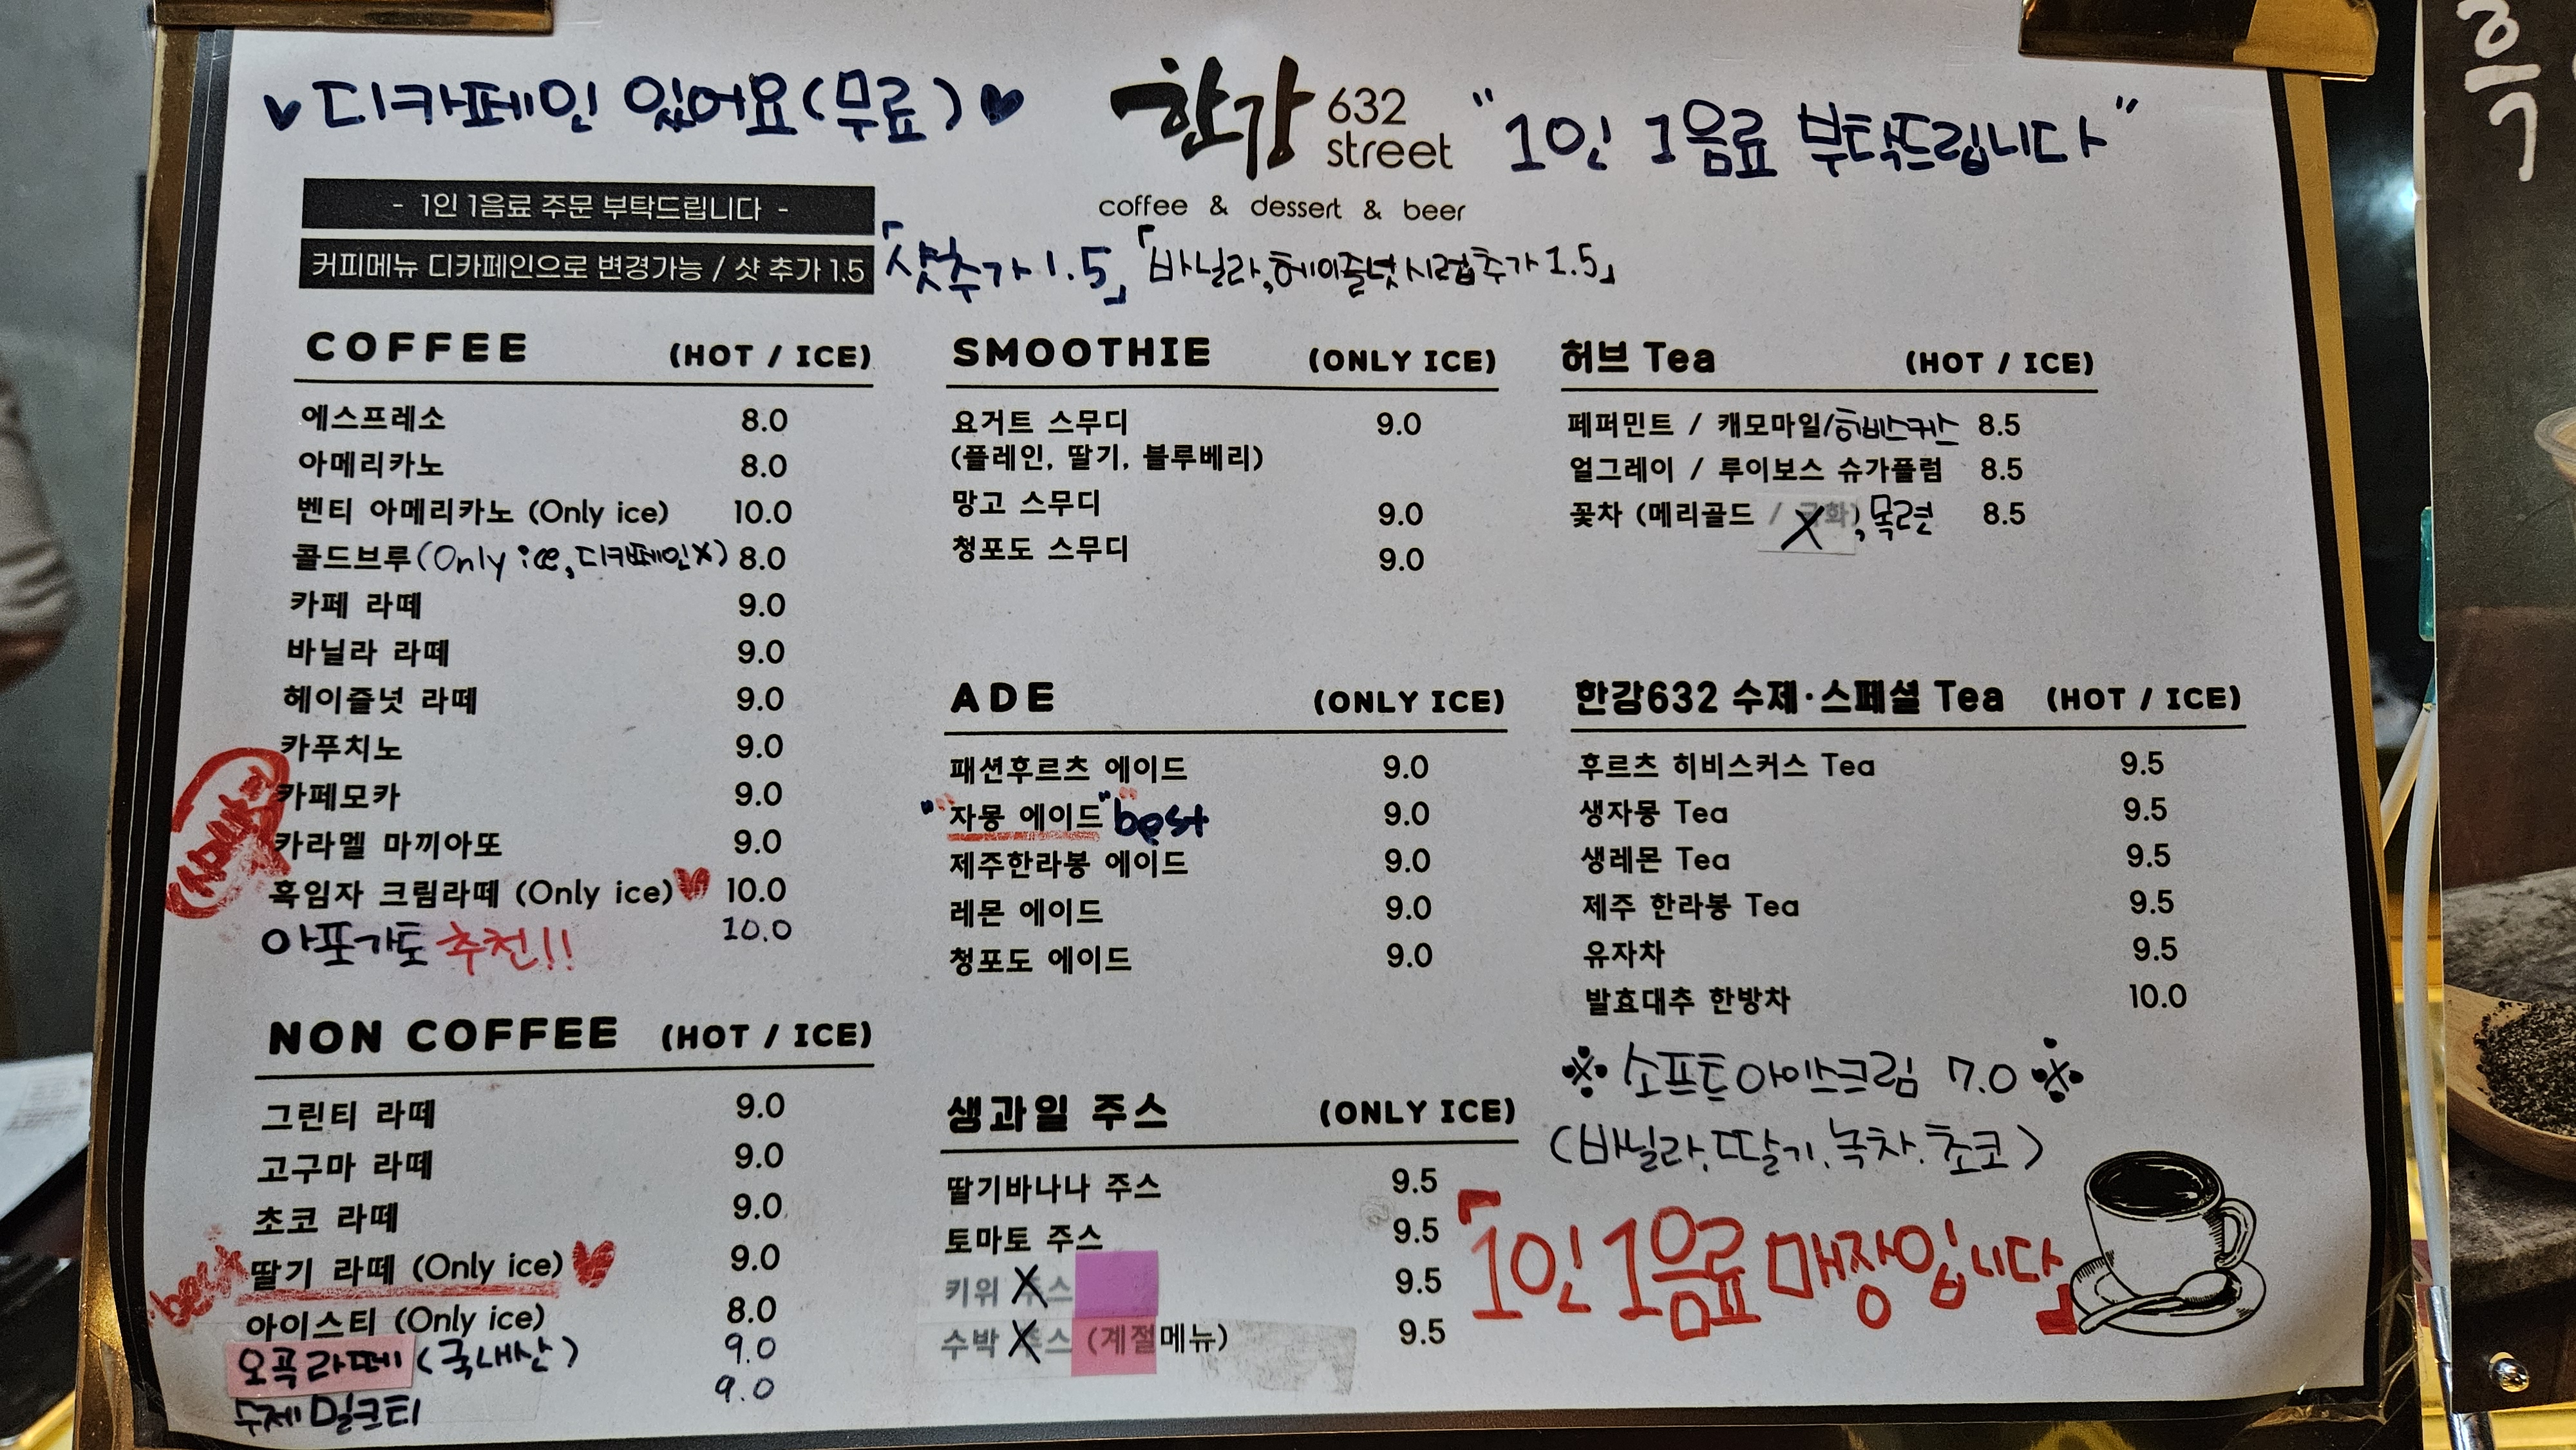 디카페인 있어요(무료)
한강 632 street
coffee & dessert & beer
"1인 1음료 부탁드립니다"
- 1인 1음료 주문 부탁드립니다 -
커피메뉴 디카페인으로 변경가능 / 샷 추가 1.5
「샷추가 1.5」 「바닐라,헤이즐넛 시럽추가 1.5」
COFFEE (HOT / ICE)
에스프레소 8.0
아메리카노 8.0
벤티 아메리카노 (Only ice) 10.0
콜드브루(Only ice, 디카페인X) 8.0
카페 라떼 9.0
바닐라 라떼 9.0
헤이즐넛 라떼 9.0
카푸치노 9.0
카페모카 9.0
카라멜 마끼아또 9.0
흑임자 크림라떼 (Only ice) 10.0
아포가토 추천!! 10.0
NON COFFEE (HOT / ICE)
그린티 라떼 9.0
고구마 라떼 9.0
초코 라떼 9.0
best 딸기 라떼 (Only ice) 9.0
아이스티 (Only ice) 8.0
오곡라떼 (국내산) 9.0
수제 밀크티 9.0
SMOOTHIE (ONLY ICE)
요거트 스무디 9.0
(플레인, 딸기, 블루베리)
망고 스무디 9.0
청포도 스무디 9.0
ADE (ONLY ICE)
패션후르츠 에이드 9.0
"자몽 에이드" best 9.0
제주한라봉 에이드 9.0
레몬 에이드 9.0
청포도 에이드 9.0
생과일 주스 (ONLY ICE)
딸기바나나 주스 9.5
토마토 주스 9.5
키위 X 주스 9.5
수박 X 주스 (계절메뉴) 9.5
허브 Tea (HOT / ICE)
페퍼민트 / 캐모마일/히비스커스 8.5
얼그레이 / 루이보스 슈가플럼 8.5
꽃차 (메리골드 / 국화), X 목련 8.5
한강632 수제·스페셜 Tea (HOT / ICE)
후르츠 히비스커스 Tea 9.5
생자몽 Tea 9.5
생레몬 Tea 9.5
제주 한라봉 Tea 9.5
유자차 9.5
발효대추 한방차 10.0
※ 소프트아이스크림 7.0 ※
(바닐라, 딸기, 녹차, 초코)
「1인 1음료 매장입니다」
흑